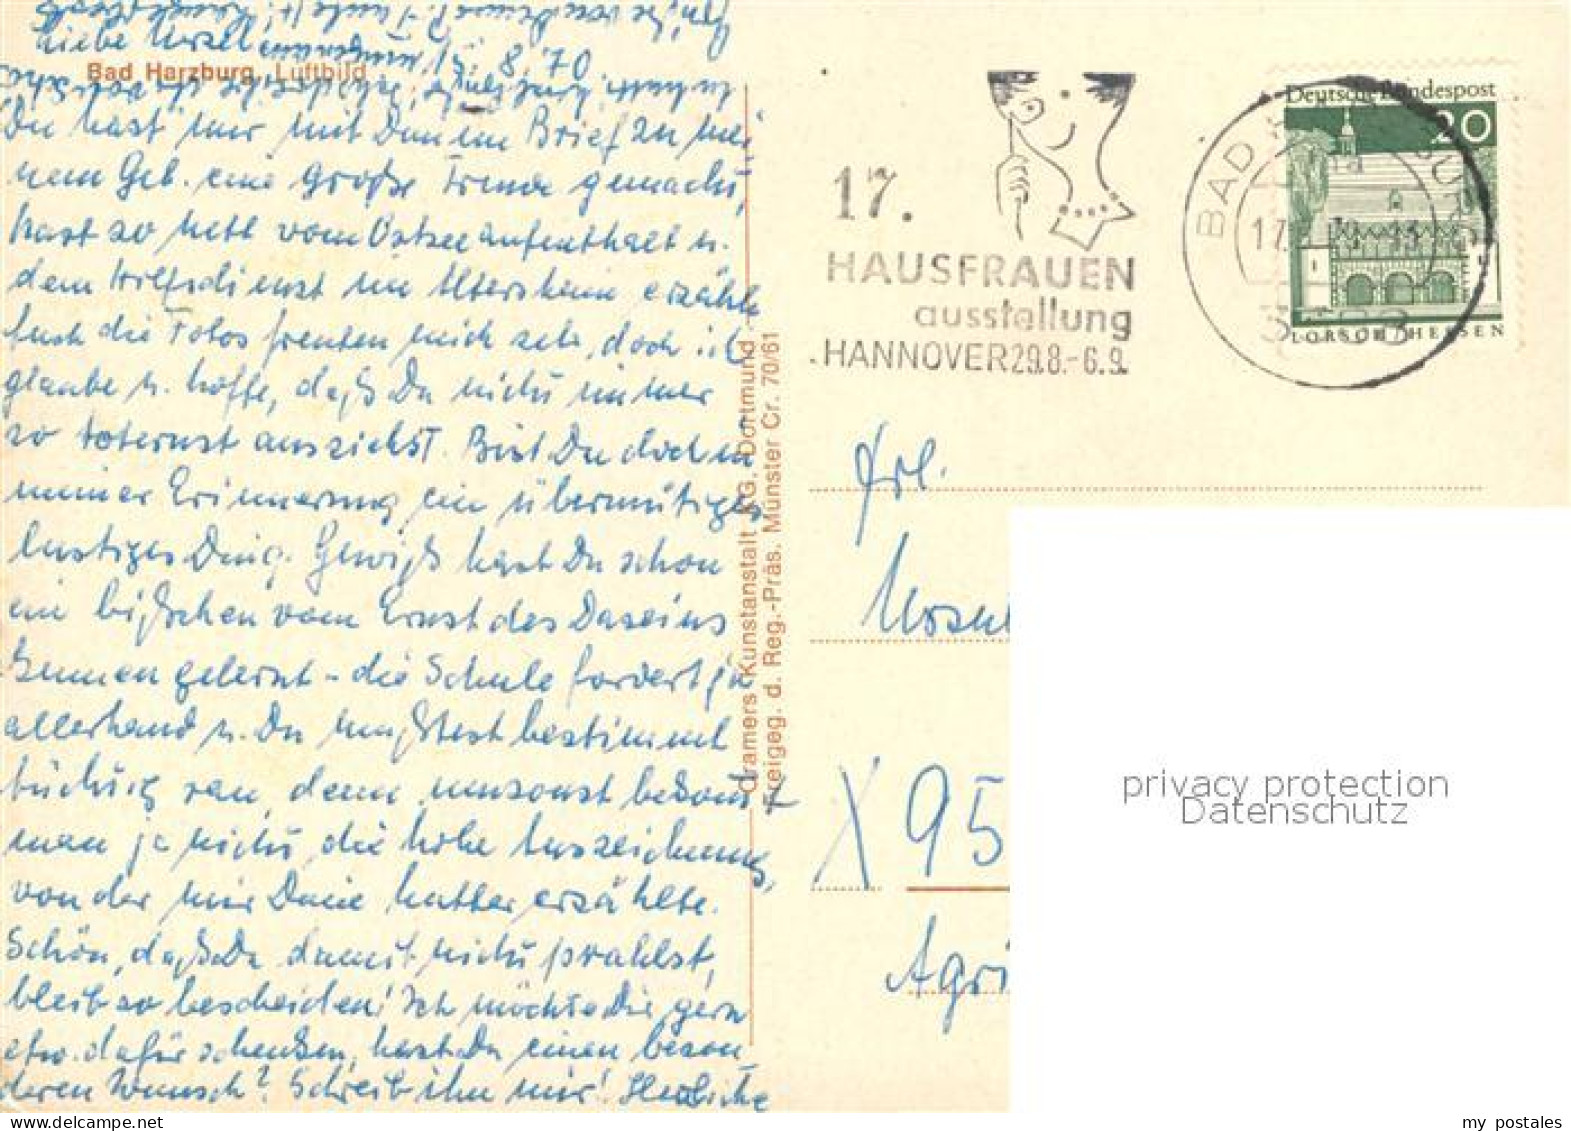 Liebe Ursel! 15.8.70
Bad Harzburg, Luftbild
Du hast mir mit Deinem Brief zu mei
nem Geb. eine große Freude gemacht,
hast so nett vom Ostseeaufenthalt u.
dem Hilfsdienst im Altersheim erzählt
Auch die Fotos freuten mich sehr, doch ich
glaube u. hoffe, daß Du nicht immer
so toternst aussiehst. Bist Du doch in
meiner Erinnerung ein übermütiges
lustiges Ding. Gewiß hast Du schon
ein bißchen vom Ernst des Daseins
kennen gelernt - die Schule fordert ja
allerhand u. Du mußtest bestimmt
tüchtig ran, denn umsonst bekommt
man ja nicht die hohe Auszeichnung,
von der mir Deine Mutter erzählte.
Schön, daß Du damit nicht prahlst,
bleib so bescheiden! Ich möchte Dir gern
etw. dafür schenken, hast Du einen beson
deren Wunsch? Schreib ihn mir! Herzliche
Cramers Kunstanstalt KG, Dortmund
Freigeg. d. Reg.-Präs. Münster Cr. 70/61
17.
HAUSFRAUEN
ausstellung
HANNOVER 29.8.-6.9.
BAD HARZBURG
17.
Deutsche Bundespost
20
LORSCH/HESSEN
Frl.
Ursul
X 95
Agri
privacy protection
Datenschutz
my postales